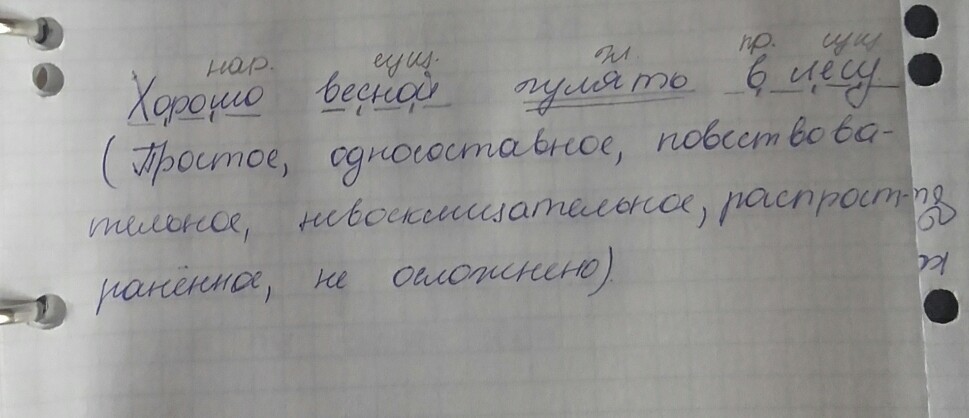 нар. сущ. гл. пр. сущ
Хорошо весной гулять в лесу.
(Простое, односоставное, повествова-
тельное, невосклицательное, распрост-
ранённое, не осложнено).